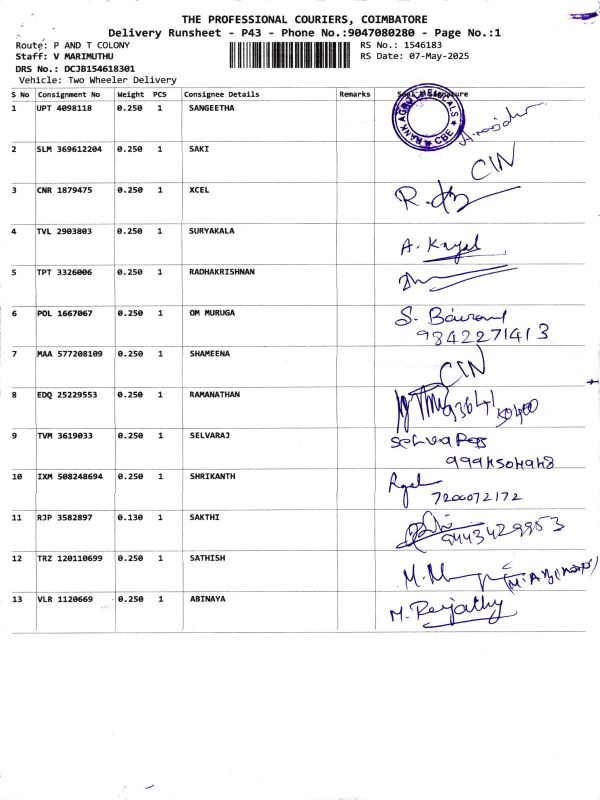 THE PROFESSIONAL COURIERS, COIMBATORE
Delivery Runsheet - P43 - Phone No.:9047080280 - Page No.:1
Route: P AND T COLONY RS No.: 1546183
Staff: V MARIMUTHU RS Date: 07-May-2025
DRS No.: DCJB154618301
Vehicle: Two Wheeler Delivery
S No Consignment No Weight PCS Consignee Details Remarks
1 UPT 4098118 0.250 1 SANGEETHA
2 SLM 369612204 0.250 1 SAKI CIN
3 CNR 1879475 0.250 1 XCEL
4 TVL 2903803 0.250 1 SURYAKALA A. Kayal
5 TPT 3326006 0.250 1 RADHAKRISHNAN
6 POL 1667067 0.250 1 OM MURUGA S.
9842271413
7 MAA 577208109 0.250 1 SHAMEENA CIN
8 EDQ 25229553 0.250 1 RAMANATHAN
9 TVM 3619033 0.250 1 SELVARAJ
10 IXM 508248694 0.250 1 SHRIKANTH
7200072172
11 RJP 3582897 0.130 1 SAKTHI
9443429953
12 TRZ 120110699 0.250 1 SATHISH
13 VLR 1120669 0.250 1 ABINAYA M.